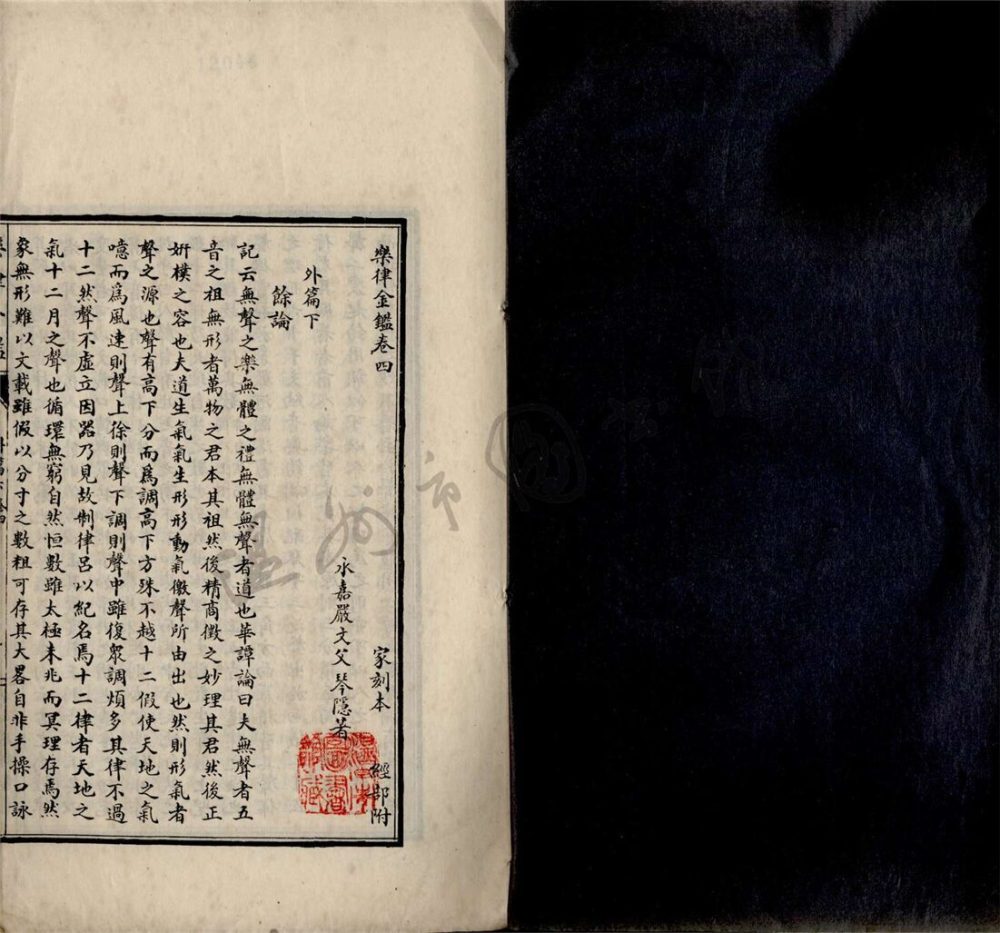 樂律金鑑卷四
家刻本
經部附
永嘉嚴文父琴隱著
外篇下
餘論
記云無聲之樂無體之禮無體無聲者道也華譚論曰夫無聲者五
音之祖無形者萬物之君本其祖然後精商徵之妙理其君然後正
妍樸之容也夫道生氣氣生形形動氣徹聲所由出也然則形氣者
聲之源也聲有高下分而爲調高下方殊不越十二假使天地之氣
噫而爲風速則聲上徐則聲下調則聲中雖復衆調煩多其律不過
十二然聲不虛立因器乃見故制律呂以紀名焉十二律者天地之
氣十二月之聲也循環無窮自然恒數雖太極未兆而冥理存焉然
象無形難以文載雖假以分寸之數粗可存其大畧自非手操口詠
溫州市圖書館藏
溫州市圖